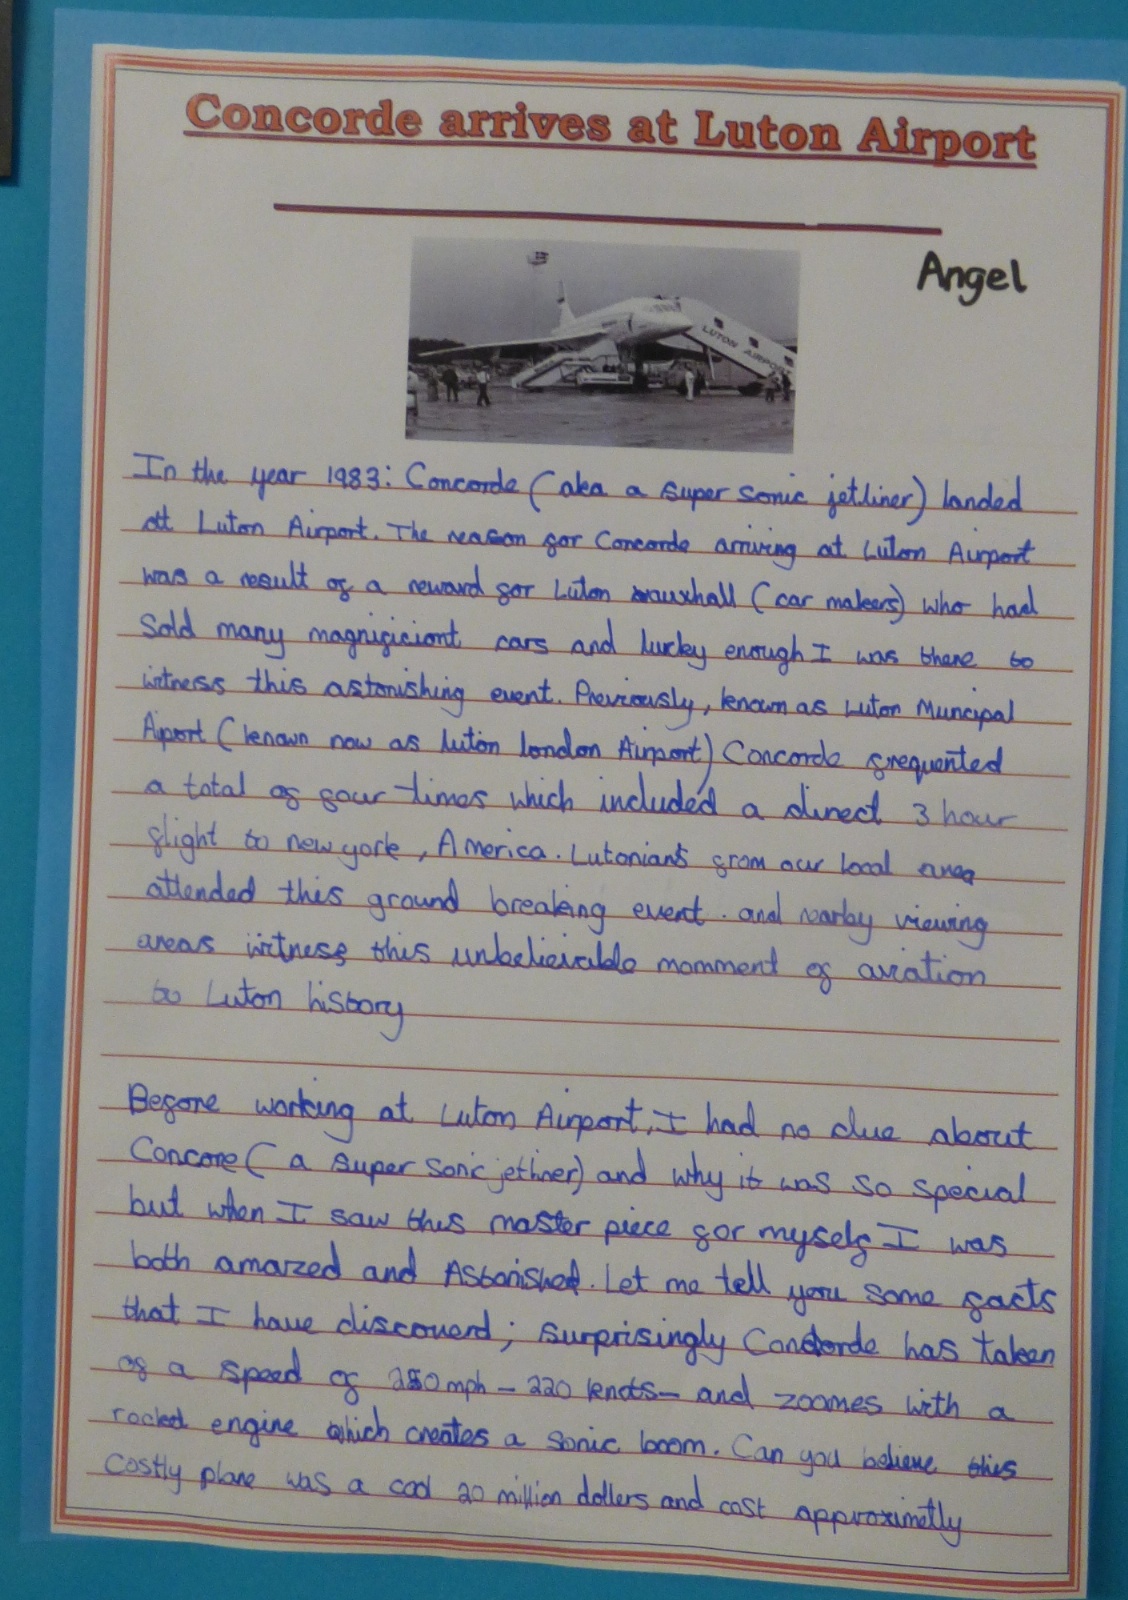 Concorde arrives at Luton Airport
Angel
LUTON AIRPORT
In the year 1983: Concorde (aka a super sonic jetliner) landed
at Luton Airport. The reason for Concorde arriving at Luton Airport
was a result of a reward for Luton vauxhall (car makers) who had
Sold many magnificiont cars and lucky enough I was there to
witness this astonishing event. Previously, known as Luton Muncipal
Aiport (known now as luton london Airport) Concorde frequented
a total of four times which included a direct 3 hour
flight to new york, America. Lutonians from our local area
attended this ground breaking event. and nearby viewing
areas witness this unbelievable momment of aviation
to Luton history
Before working at Luton Airport, I had no clue about
Concore ( a super sonic jetliner) and why it was so special
but when I saw this master piece for myself I was
both amazed and Astonished. Let me tell you some facts
that I have discouerd; surprisingly Concorde has taken
of a speed of 250 mph - 220 knots- and zoomes with a
rocket engine which creates a sonic boom. Can you believe this
costly plane was a cool 20 million dollers and cost approximetly